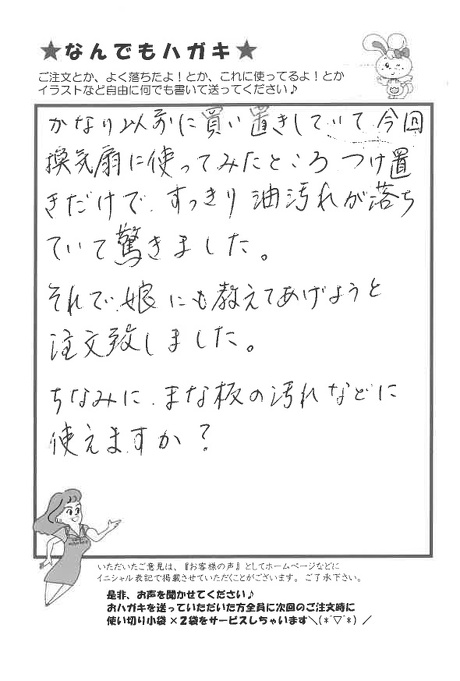 ★なんでもハガキ★
ご注文とか、よく落ちたよ！とか、これに使ってるよ！とか
イラストなど自由に何でも書いて送ってください♪
かなり以前に買い置きしていて今回
換気扇に使ってみたところつけ置
きだけで、すっきり油汚れが落ち
ていて驚きました。
それで、娘にも教えてあげようと
注文致しました。
ちなみに、まな板の汚れなどに
使えますか？
いただいたご意見は、『お客様の声』としてホームページなどに
イニシャル表記で掲載させていただくことがございます。ご了承下さい。
是非、お声を聞かせてください♪
おハガキを送っていただいた方全員に次回のご注文時に
使い切り小袋×2袋をサービスしちゃいます＼(*´▽`*)／